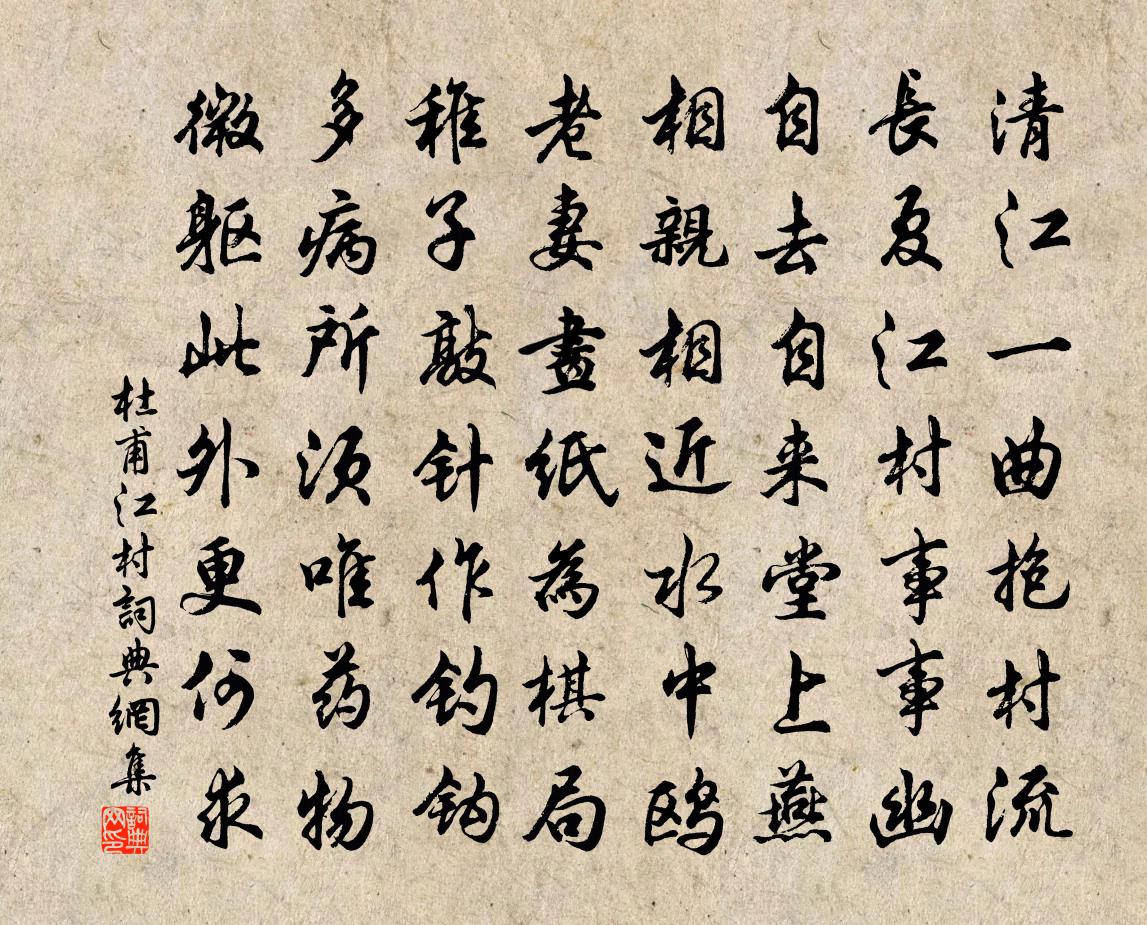 清江一曲抱村流
長夏江村事事幽
自去自来堂上燕
相親相近水中鸥
老妻畫紙為棋局
稚子敲针作钓钩
多病所须唯药物
微躯此外更何求
杜甫江村詞典網集
詞典网印